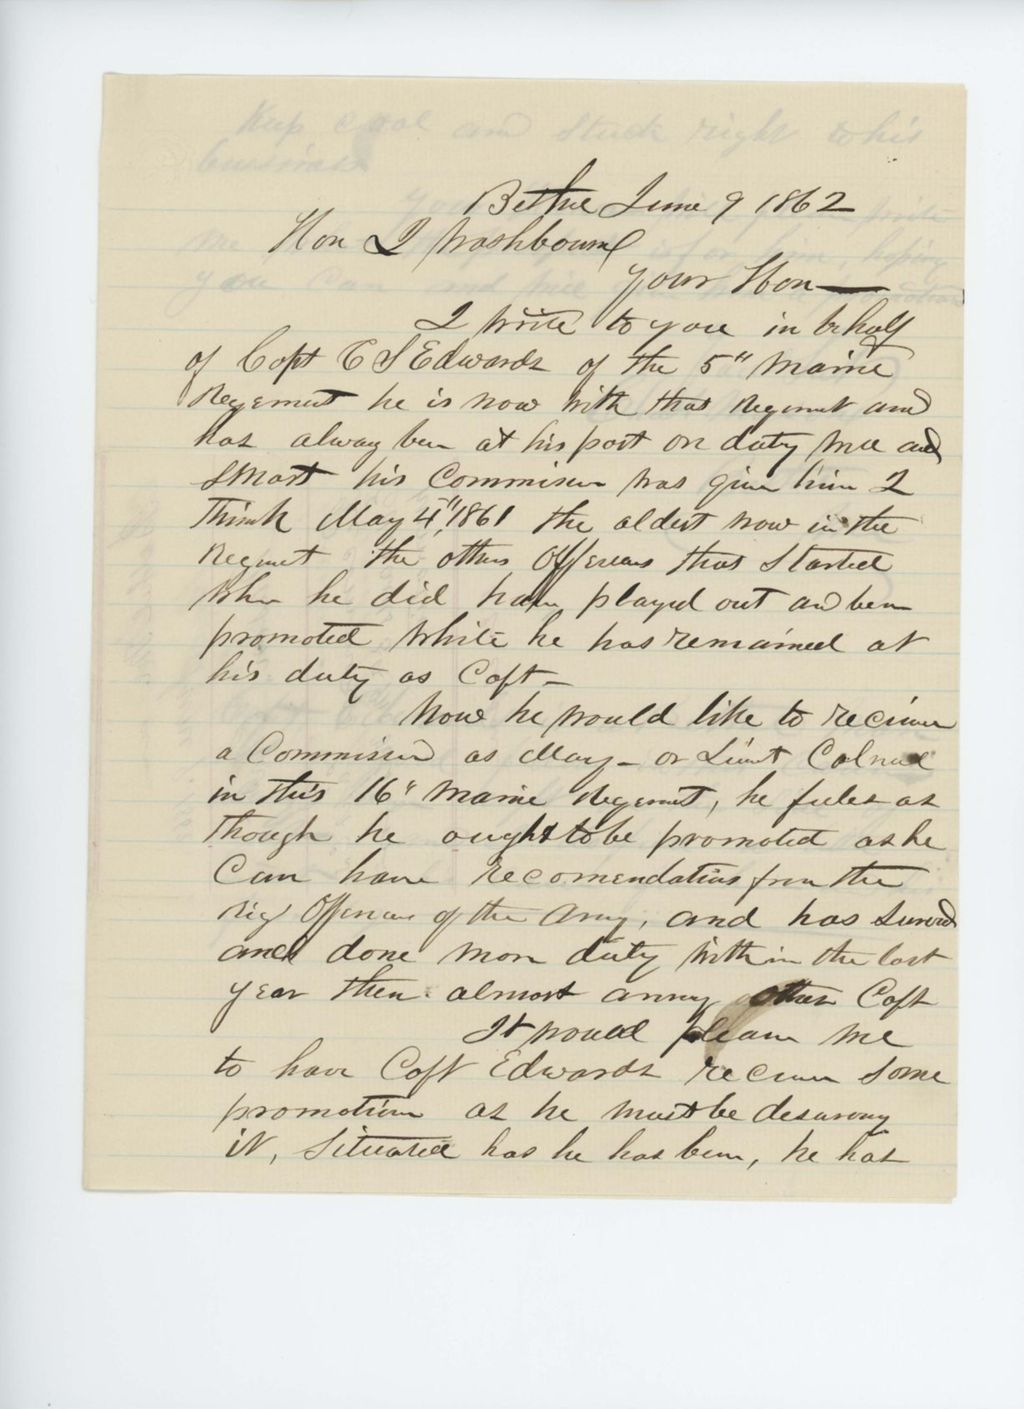 Bethel June 9 1862
Hon I Washbourne
Your Hon—
I write to you in behalf
of Capt C S Edwards of the 5" Maine
Regement he is now with that Regement and
has alway been at his post on duty and
smart his Commission was given him I
think May 4", 1861 the oldest now in the
Regment the others Offercers that Started
when he did have played out and been
promoted while he has remained at
his duty as Capt—
Now he would like to recieve
a Commission as May— or Lieut Colnel
in this 16" Maine Regement, he feeles as
though he ought to be promoted as he
Can have recomendations from the
Reg Offercers of the Army, and has Served
and done more duty within the last
year then almost anny other Capt
It would please me
to have Capt Edwards recieve some
promotion as he must be deserving
it, Situated has he has been, he has